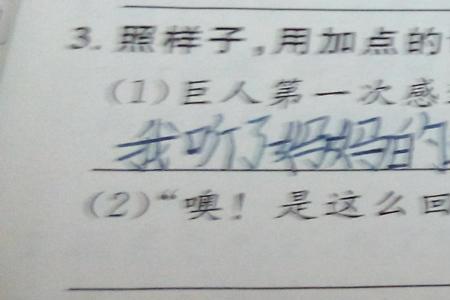 3. 照样子,用加点的
(1)巨人第一次感
我听了妈妈的
(2)“噢! 是这么回